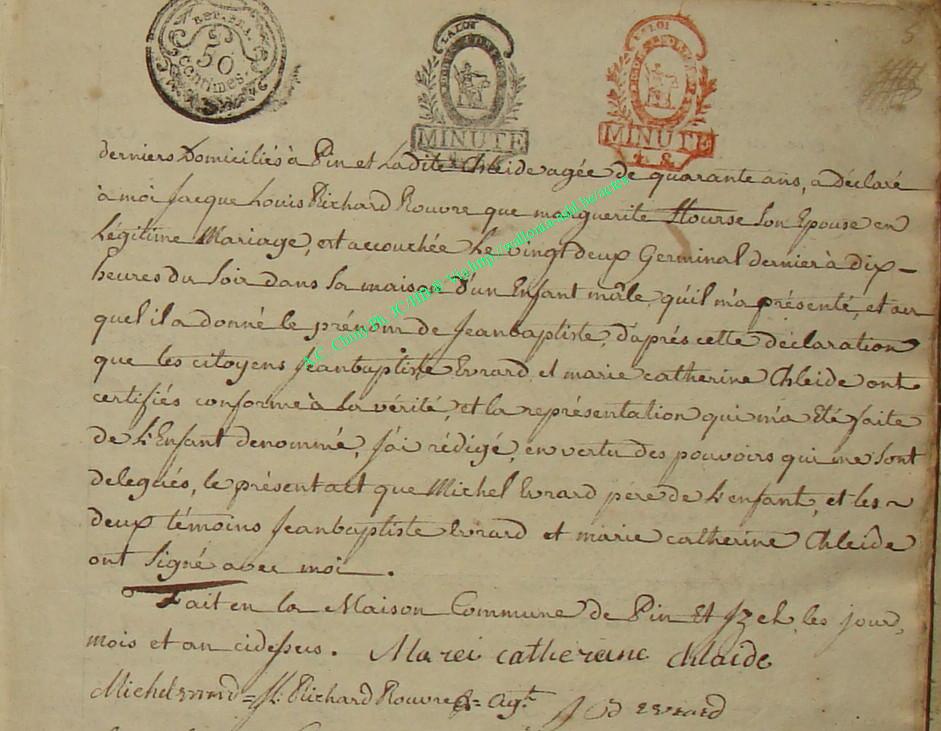 50
Centimes
LA LOI
LA LOI
MINUTE
MINUTE
5
derniers Domiciliés à Pin et Ladite Chleide agée de quarante ans, a Déclaré
à moi Jacque Louis Richard Rouvre que marguerite Hourse Son Epouse en
Légitime Mariage, est accouchée Le vingt deux Germinal dernier à dix-
heures du Soir dans Sa maison d'un Enfant mâle, qu'il m'a présenté, et au
quel il a donné le prénom de Jeanbaptiste, d'après cette déclaration
que les citoyens Jeanbaptiste Evrard et marie catherine Chleide ont
certifiés conforme à La vérité, et la représentation qui m'a Eté faite
de L'Enfant denommé, J'ai rédigé, en vertu des pouvoirs qui me Sont
delegués, le présent act que Michel Evrard père de L'enfant, et les
deux témoins Jeanbaptiste Evrard et marie catherine Chleide
ont Signé avec moi.
Fait en la Maison Commune de Pin Et Izel, les jour,
mois et an cidessus. Marei catherine chlaide
Michel evrard = Richard Rouvre = Ag.t J B evrard